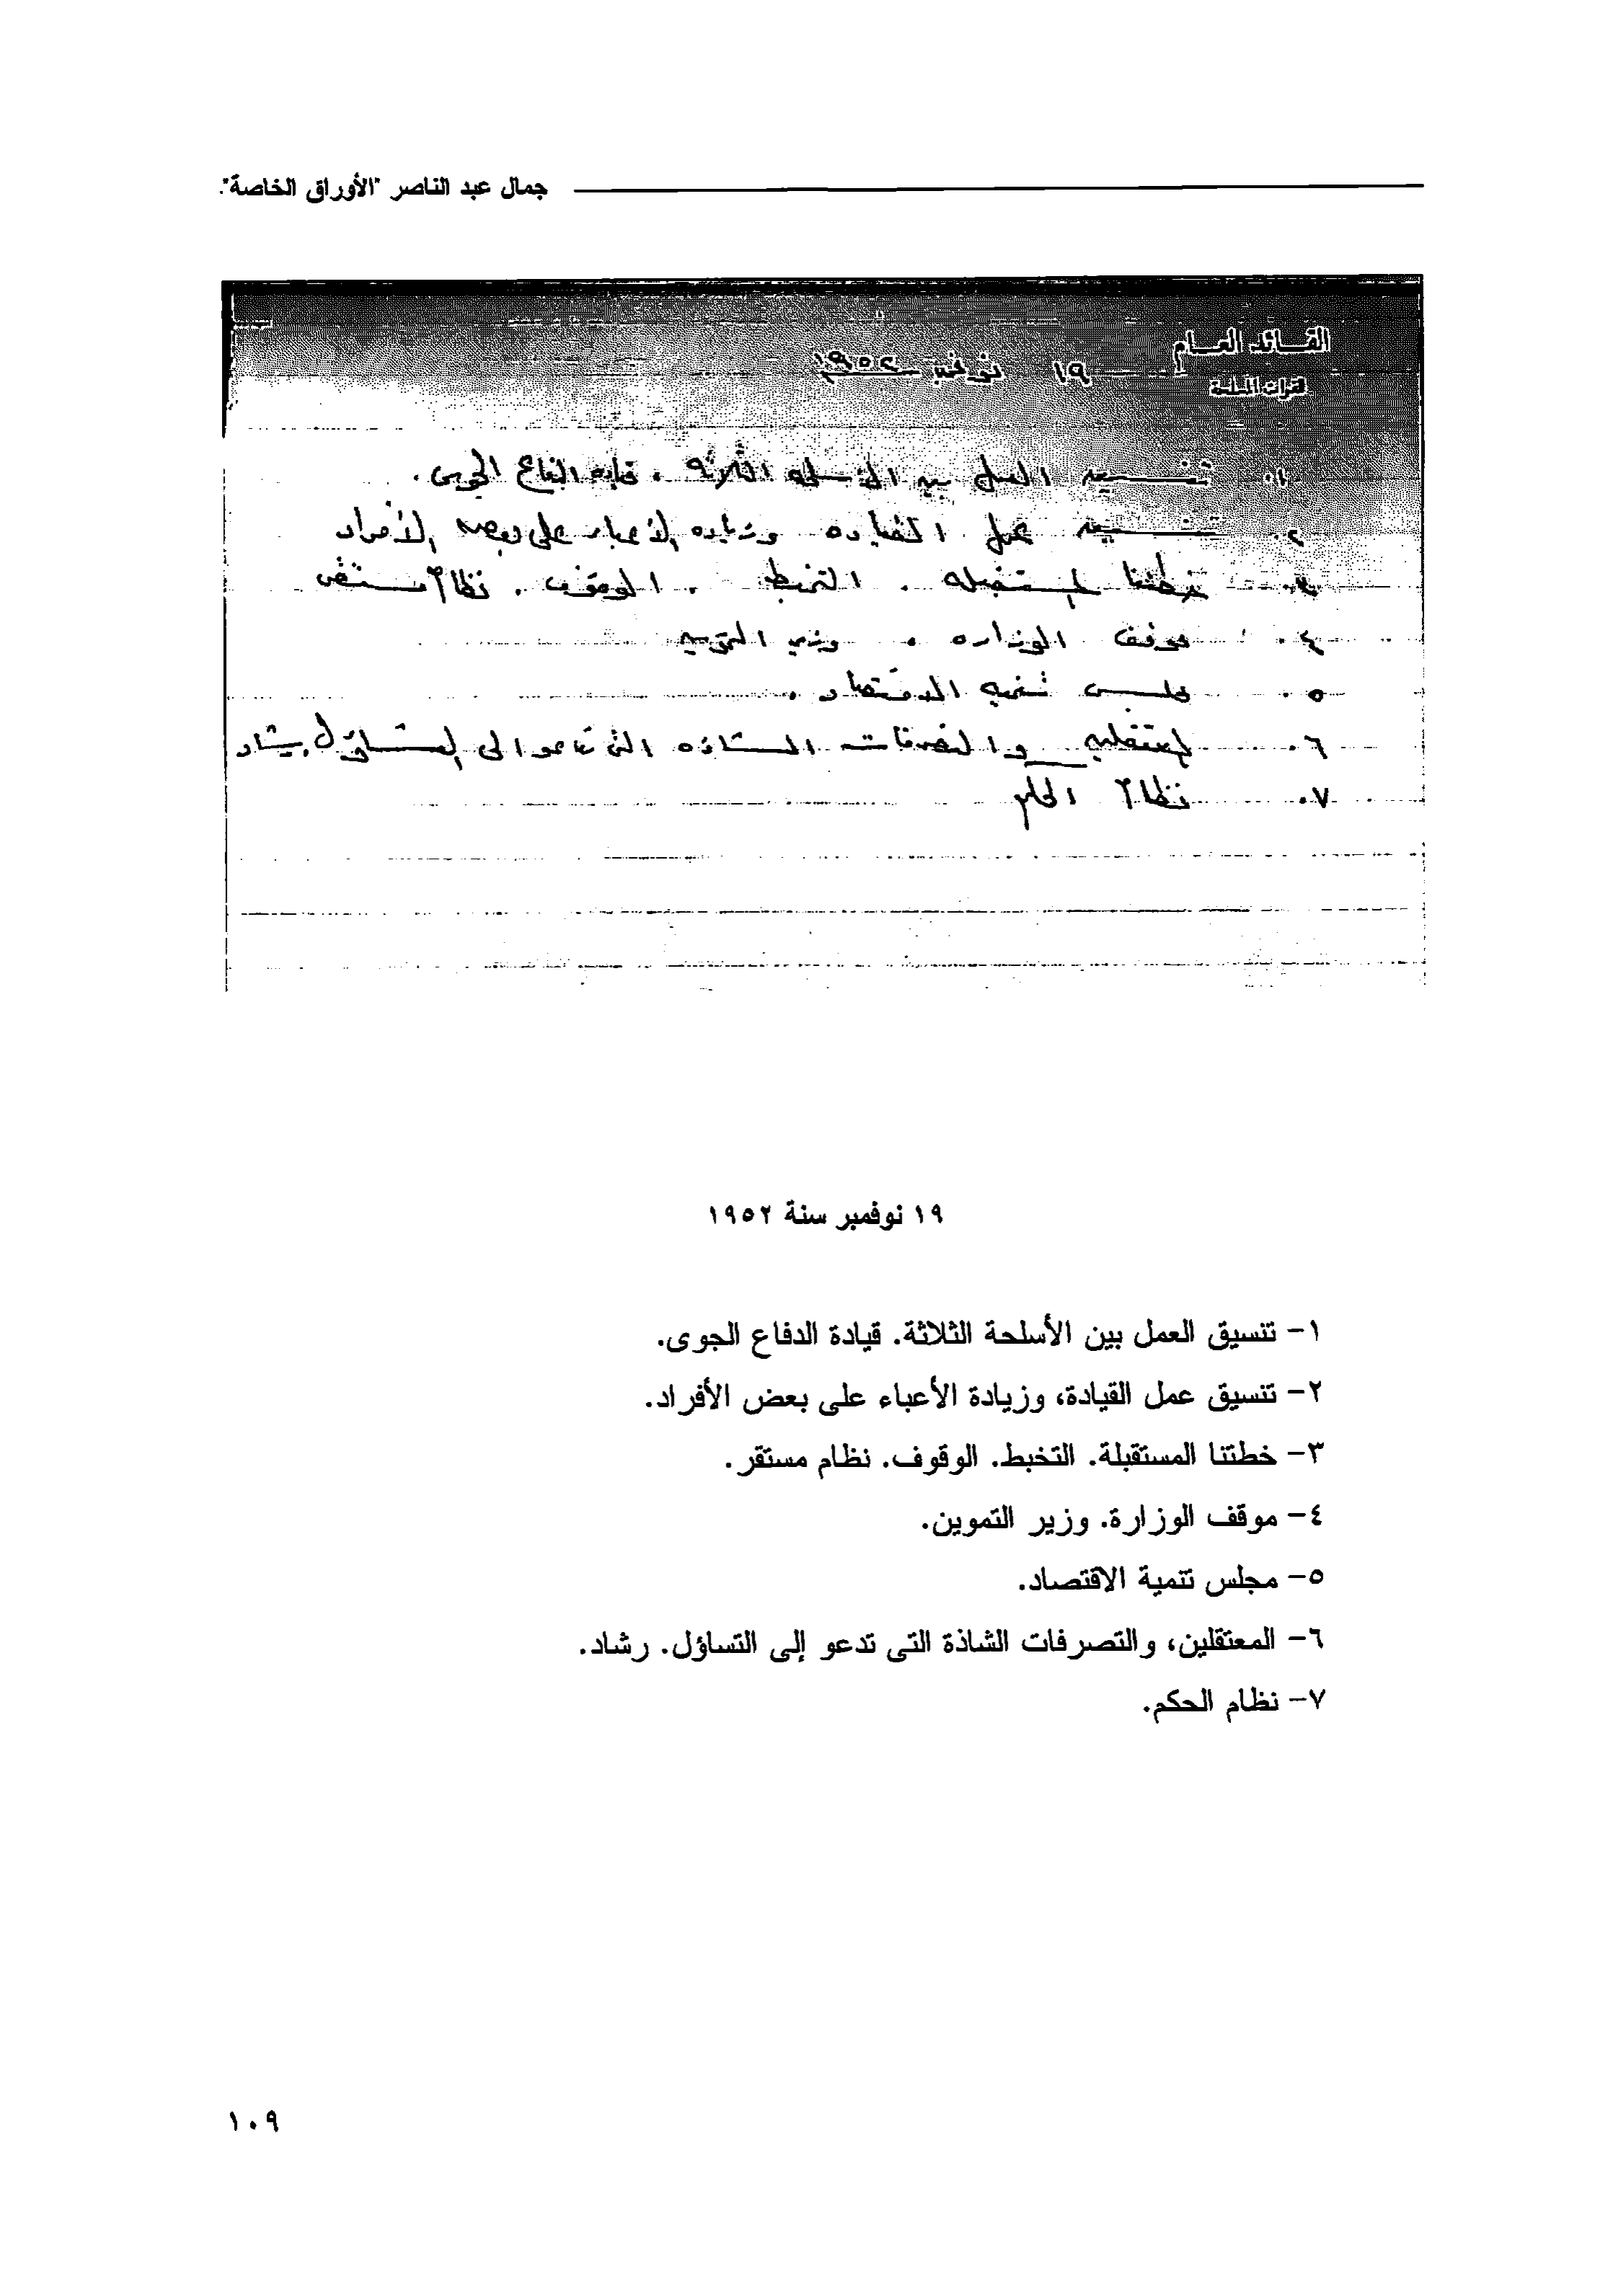 جمال عبد الناصر "الأوراق الخاصة".
القائد العام
١٩ نوفمبر ١٩٥٢
القوات المسلحة
١. تنسيق العمل بين الأسلحه الثلاثه . قياده الدفاع الجوى .
٢. تنسيق عمل القياده وزياده الأعباء على بعض الأفراد
٣. خطتنا المستقبله . التخبط . الوقوف . نظام مستقر
٤. موقف الوزاره . وزير التموين
٥. مجلس تنميه الاقتصاد .
٦. المعتقلين والتصرفات الشاذه التى تدعو الى التساؤل . رشاد
٧. نظام الحكم
١٩ نوفمبر سنة ١٩٥٢
١- تنسيق العمل بين الأسلحة الثلاثة. قيادة الدفاع الجوى.
٢- تنسيق عمل القيادة، وزيادة الأعباء على بعض الأفراد.
٣- خطتنا المستقبلة. التخبط. الوقوف. نظام مستقر.
٤- موقف الوزارة. وزير التموين.
٥- مجلس تنمية الاقتصاد.
٦- المعتقلين، والتصرفات الشاذة التى تدعو إلى التساؤل. رشاد.
٧- نظام الحكم.
١٠٩